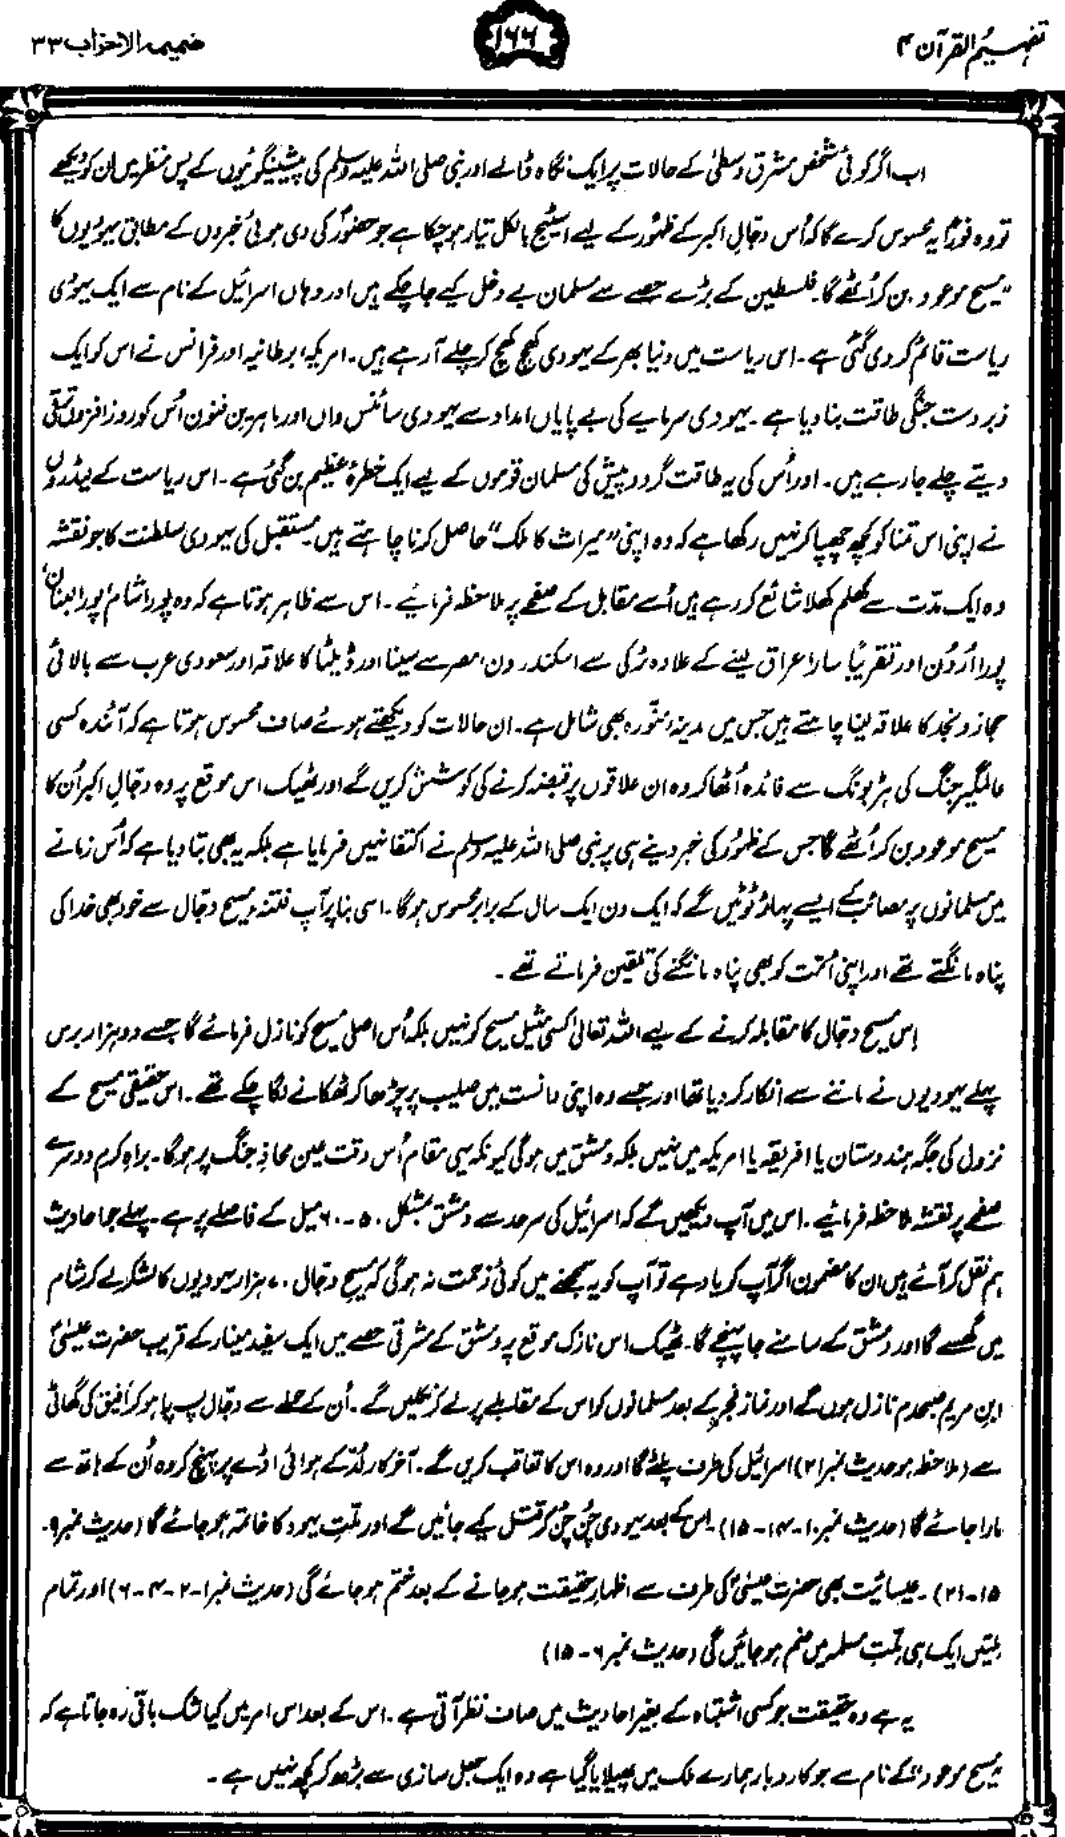 تفہیم القرآن ۴
۱۶۶
ضمیمہ الاحزاب ۳۳
اب اگر کوئی شخص مشرق وسطیٰ کے حالات پر ایک نگاہ ڈالے اور نبی صلی اللہ علیہ وسلم کی پیشینگوئیوں کے پس منظر میں ان کو دیکھے
تو وہ فوراً یہ محسوس کرے گا کہ اُس دجالِ اکبر کے ظہُور کے لیے اسٹیج بالکل تیار ہو چکا ہے جو حضورؐ کی دی ہوئی خبروں کے مطابق یہودیوں کا
”مسیح موعود“ بن کر اُٹھے گا۔ فلسطین کے بڑے حصے سے مسلمان بے دخل کیے جا چکے ہیں اور وہاں اسرائیل کے نام سے ایک یہودی
ریاست قائم کر دی گئی ہے۔ اس ریاست میں دنیا بھر کے یہودی کھچ کھچ کر چلے آ رہے ہیں۔ امریکہ، برطانیہ اور فرانس نے اس کو ایک
زبردست جنگی طاقت بنا دیا ہے۔ یہودی سرمایے کی بے پایاں امداد سے یہودی سائنس داں اور ماہرین فنون اُس کو روز افزوں ترقی
دیتے چلے جا رہے ہیں۔ اور اُس کی یہ طاقت گرد و پیش کی مسلمان قوموں کے لیے ایک خطرۂ عظیم بن گئی ہے۔ اس ریاست کے لیڈروں
نے اپنی اس تمنا کو کچھ چھپا کر نہیں رکھا ہے کہ وہ اپنی ”میراث کا ملک“ حاصل کرنا چاہتے ہیں۔ مستقبل کی یہودی سلطنت کا جو نقشہ
وہ ایک مدّت سے کھلم کھلا شائع کر رہے ہیں اُسے مقابل کے صفحے پر ملاحظہ فرمائیے۔ اس سے ظاہر ہوتا ہے کہ وہ پورا شام، پورا لبنان،
پورا اُردُن اور تقریبًا سارا عراق لینے کے علاوہ ترکی سے اسکندرون، مصر سے سینا اور ڈیلٹا کا علاقہ اور سعودی عرب سے بالائی
حجاز و نجد کا علاقہ لینا چاہتے ہیں جس میں مدینۂ منوّرہ بھی شامل ہے۔ ان حالات کو دیکھتے ہوئے صاف محسوس ہوتا ہے کہ آئندہ کسی
عالمگیر جنگ کی ہڑبونگ سے فائدہ اُٹھا کر وہ ان علاقوں پر قبضہ کرنے کی کوشش کریں گے اور ٹھیک اس موقع پر وہ دجالِ اکبر اُن کا
مسیح موعود بن کر اُٹھے گا جس کے ظہُور کی خبر دینے ہی پر نبی صلی اللہ علیہ وسلم نے اکتفا نہیں فرمایا ہے بلکہ یہ بھی بتا دیا ہے کہ اُس زمانے
میں مسلمانوں پر مصائب کے ایسے پہاڑ ٹوٹیں گے کہ ایک دن ایک سال کے برابر محسوس ہوگا۔ اسی بنا پر آپ فتنۂ مسیح دجال سے خود بھی خدا کی
پناہ مانگتے تھے اور اپنی اُمّت کو بھی پناہ مانگنے کی تلقین فرماتے تھے۔
اِس مسیح دجال کا مقابلہ کرنے کے لیے اللہ تعالیٰ کسی مثیلِ مسیح کو نہیں بلکہ اُس اصلی مسیح کو نازل فرمائے گا جسے دو ہزار برس
پہلے یہودیوں نے ماننے سے انکار کر دیا تھا اور جسے وہ اپنی دانست میں صلیب پر چڑھا کر ٹھکانے لگا چکے تھے۔ اس حقیقی مسیح کے
نزول کی جگہ ہندوستان یا افریقہ یا امریکہ میں نہیں بلکہ دمشق میں ہوگی کیونکہ یہی مقام اُس وقت عین محاذِ جنگ پر ہوگا۔ براہِ کرم دوسرے
صفحے پر نقشہ ملاحظہ فرمائیے۔ اس میں آپ دیکھیں گے کہ اسرائیل کی سرحد سے دمشق بمشکل ۵۰-۶۰ میل کے فاصلے پر ہے۔ پہلے جو احادیث
ہم نقل کر آئے ہیں ان کا مضمون اگر آپ کو یاد ہے تو آپ کو یہ سمجھنے میں کوئی زحمت نہ ہوگی کہ مسیح دجال ۷۰ ہزار یہودیوں کا لشکر لے کر شام
میں گھسے گا اور دمشق کے سامنے جا پہنچے گا۔ ٹھیک اس نازک موقع پر دمشق کے مشرقی حصے میں ایک سفید مینار کے قریب حضرت عیسیٰؑ
ابن مریم صبحدم نازل ہوں گے اور نماز فجر کے بعد مسلمانوں کو اس کے مقابلے پر لے کر نکلیں گے۔ اُن کے حملے سے دجال پسپا ہو کر اَفیق کی گھاٹی
سے (ملاحظہ ہو حدیث نمبر ۲۱) اسرائیل کی طرف پلٹے گا اور وہ اس کا تعاقب کریں گے۔ آخرکار لُدّ کے ہوائی اڈے پر پہنچ کر وہ اُن کے ہاتھ سے
مارا جائے گا (حدیث نمبر ۱۰-۱۴-۱۵)۔ اس کے بعد یہودی چُن چُن کر قتل کیے جائیں گے اور ملّتِ یہود کا خاتمہ ہو جائے گا (حدیث نمبر ۹-
۱۵-۲۱)۔ عیسائیت بھی حضرت عیسیٰؑ کی طرف سے اظہارِ حقیقت ہو جانے کے بعد ختم ہو جائے گی (حدیث نمبر ۱-۲-۴-۶) اور تمام
ملتیں ایک ہی ملّتِ مسلمہ میں ضم ہو جائیں گی (حدیث نمبر ۶-۱۵)
یہ ہے وہ حقیقت جو کسی اشتباہ کے بغیر احادیث میں صاف نظر آتی ہے۔ اس کے بعد اس امر میں کیا شک باقی رہ جاتا ہے کہ
”مسیح موعود“ کے نام سے جو کاروبار ہمارے ملک میں پھیلایا گیا ہے وہ ایک جعل سازی سے بڑھ کر کچھ نہیں ہے۔